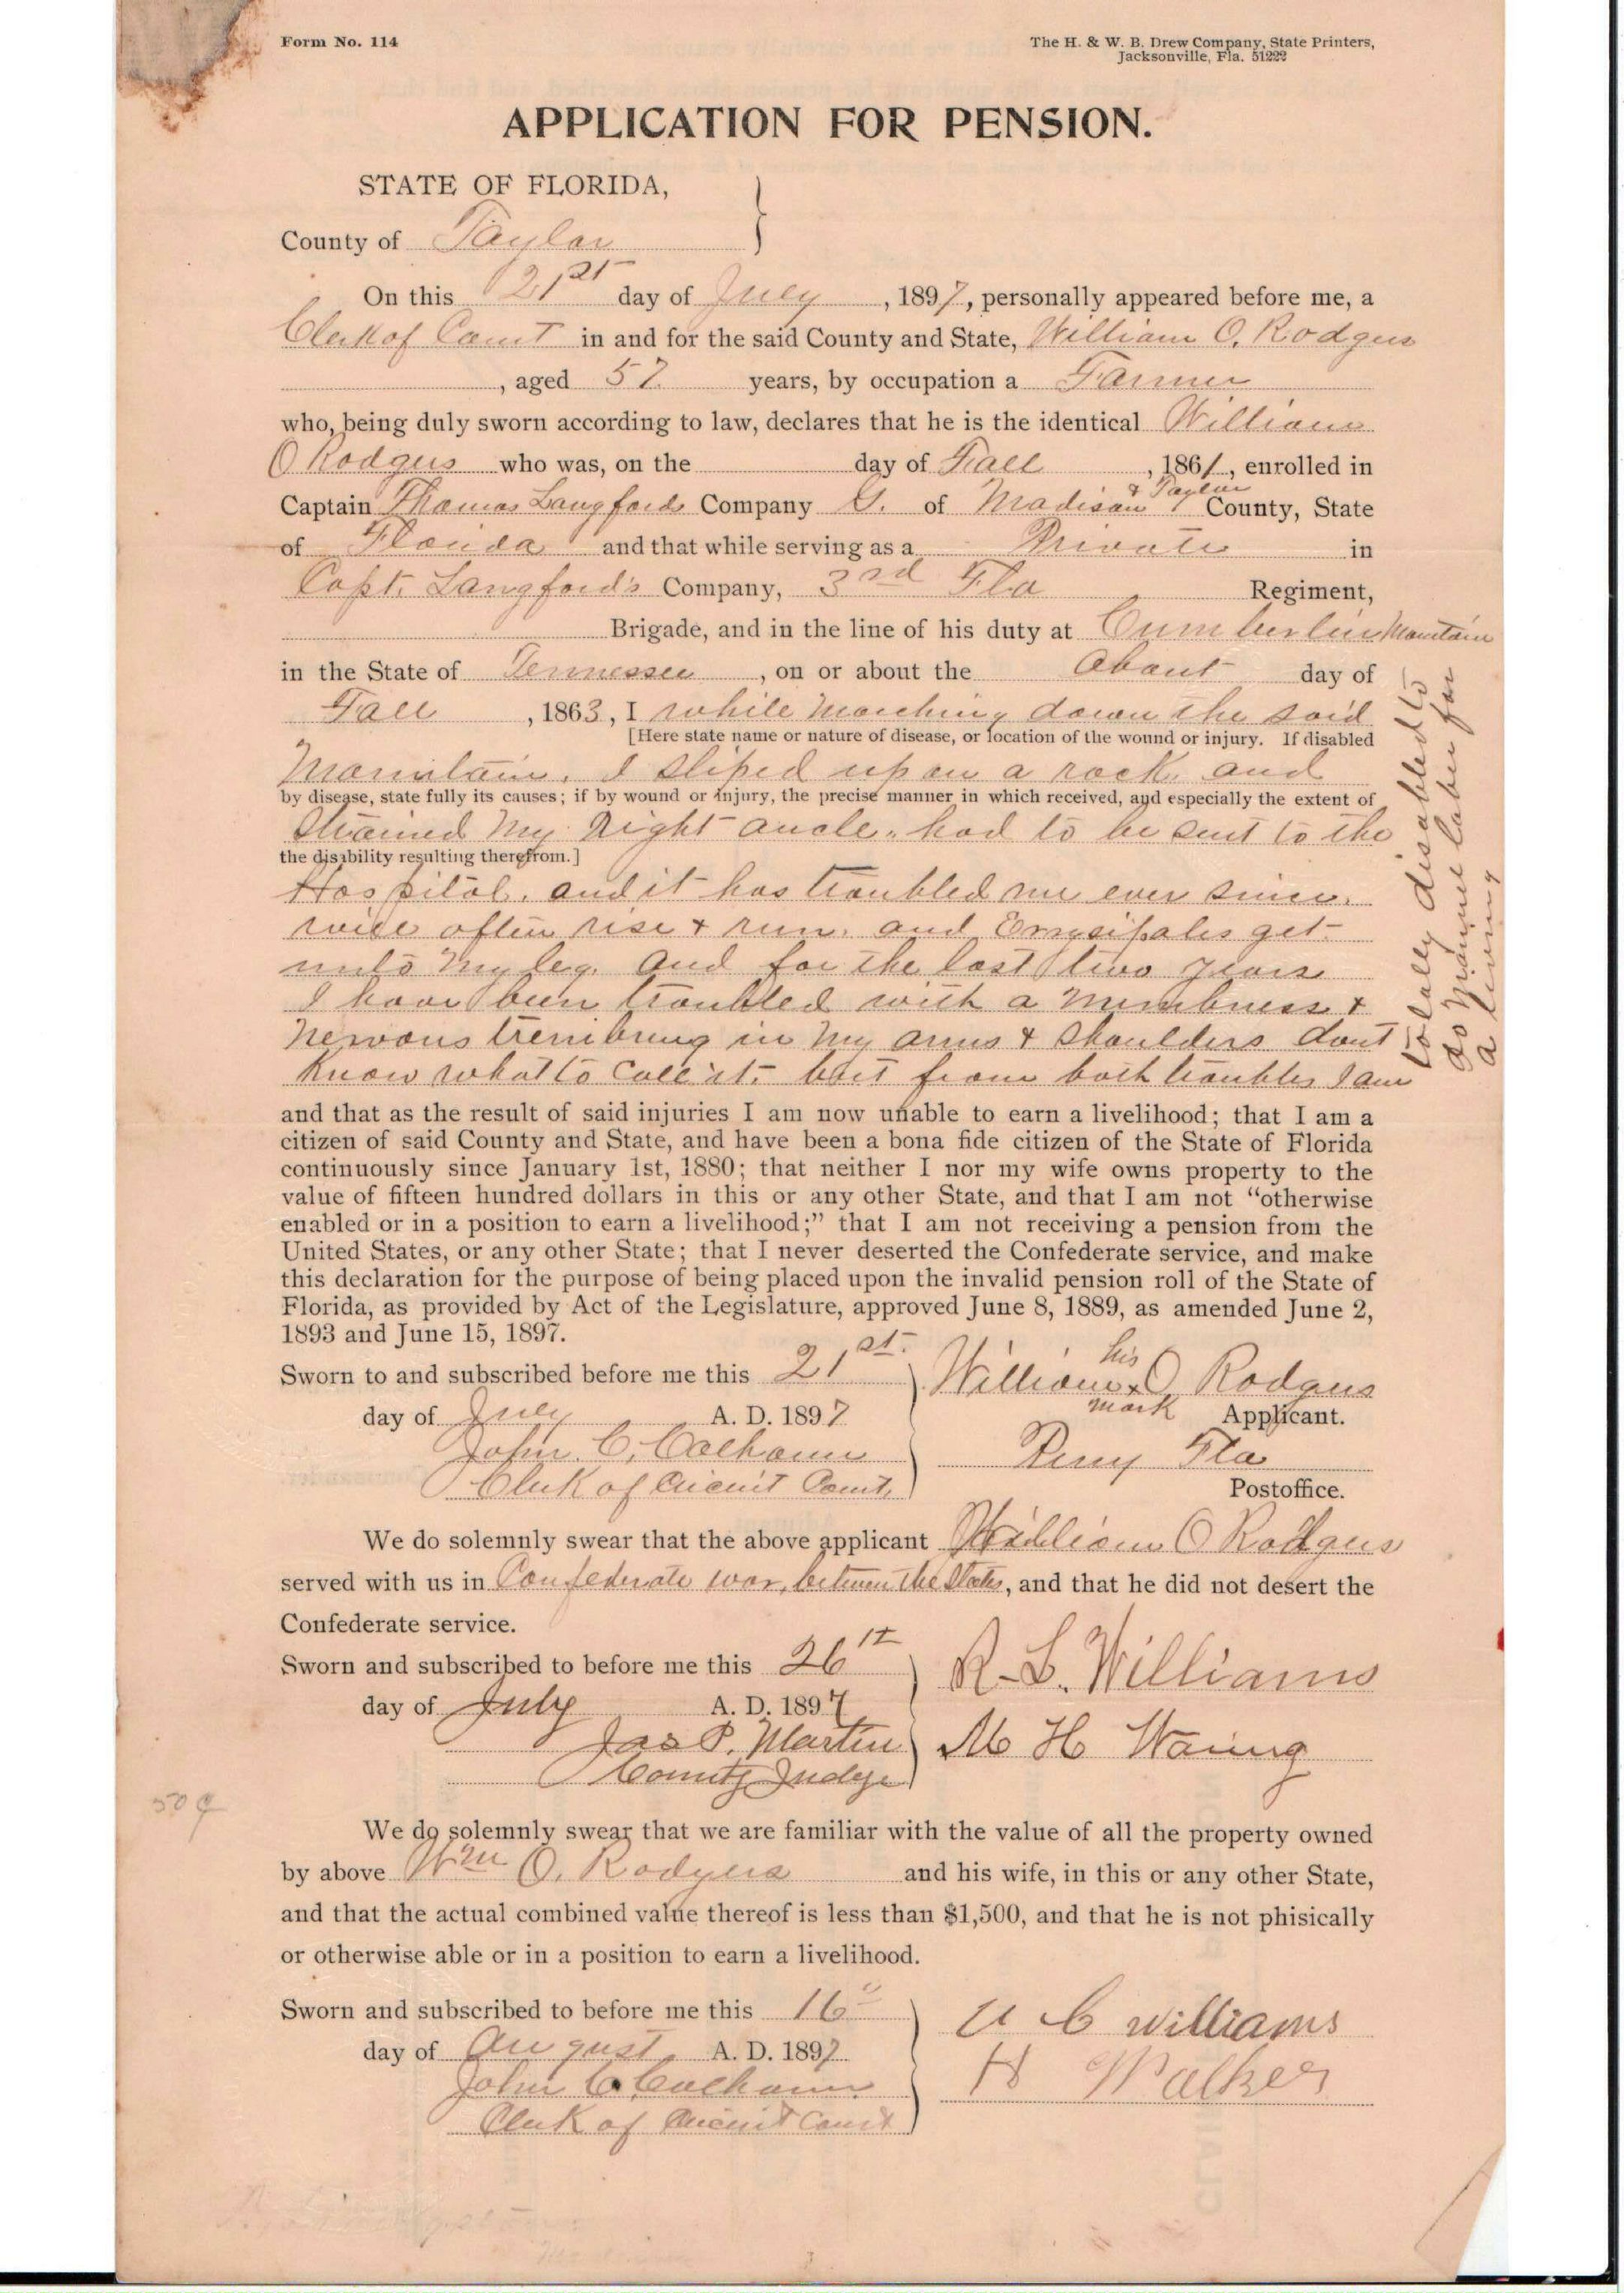 Form No. 114
The H. & W. B. Drew Company, State Printers,
Jacksonville, Fla. 51222
APPLICATION FOR PENSION.
STATE OF FLORIDA,
County of Taylor
On this 21st day of July, 1897, personally appeared before me, a
Clerk of Court in and for the said County and State, William O. Rodgers
, aged 57 years, by occupation a Farmer
who, being duly sworn according to law, declares that he is the identical William
O Rodgers who was, on the day of Fall, 1861, enrolled in
Captain Thomas Langfords Company G. of Madison & Taylor County, State
of Florida and that while serving as a Private in
Capt. Langford's Company, 3rd Fla Regiment,
Brigade, and in the line of his duty at Cumberlin Mountain
in the State of Tennessee, on or about the About day of
Fall, 1863, I while marching down the said
[Here state name or nature of disease, or location of the wound or injury. If disabled
Mountain. I sliped up on a rock and
by disease, state fully its causes; if by wound or injury, the precise manner in which received, and especially the extent of
strained my Right ancle. had to be sent to the
the disability resulting therefrom.]
Hospital. and it has troubled me ever since.
will often rise & run. and Erysipales get
into my leg. and for the last two years
I have been troubled with a numbness &
nervous trembling in my arms & shoulders dont
know what to call it. but from both troubles I am
totally disabled to
do manuel labor for
a living
and that as the result of said injuries I am now unable to earn a livelihood; that I am a
citizen of said County and State, and have been a bona fide citizen of the State of Florida
continuously since January 1st, 1880; that neither I nor my wife owns property to the
value of fifteen hundred dollars in this or any other State, and that I am not "otherwise
enabled or in a position to earn a livelihood;" that I am not receiving a pension from the
United States, or any other State; that I never deserted the Confederate service, and make
this declaration for the purpose of being placed upon the invalid pension roll of the State of
Florida, as provided by Act of the Legislature, approved June 8, 1889, as amended June 2,
1893 and June 15, 1897.
Sworn to and subscribed before me this 21st.
day of July A. D. 1897
John C. Calhoun
Clerk of Circuit Court.
his
William x O Rodgers
mark
Applicant.
Perry Fla
Postoffice.
We do solemnly swear that the above applicant William O Rodgers
served with us in Confederate war, between the States, and that he did not desert the
Confederate service.
Sworn and subscribed to before me this 26th
day of July A. D. 1897
Jas P. Martin
County Judge
R. L. Williams
M H Waring
50¢
We do solemnly swear that we are familiar with the value of all the property owned
by above Wm O. Rodgers and his wife, in this or any other State,
and that the actual combined value thereof is less than $1,500, and that he is not phisically
or otherwise able or in a position to earn a livelihood.
Sworn and subscribed to before me this 16"
day of August A. D. 1897
John C. Calhoun
Clerk of Circuit Court
U C Williams
H Walker